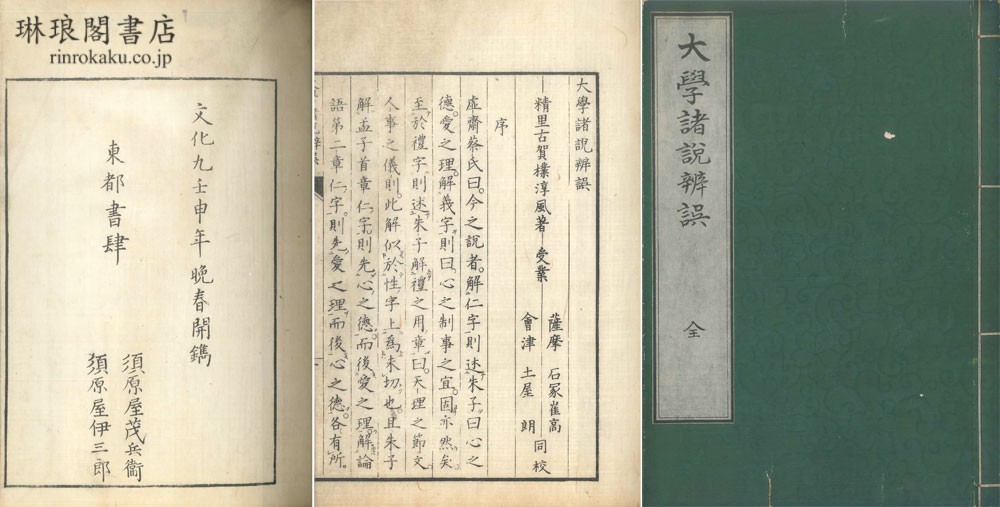 琳琅閣書店
rinrokaku.co.jp
文化九壬申年晚春開鐫
東都書肆
須原屋茂兵衞
須原屋伊三郎
大學諸說辨誤
精里古賀樸淳風著 受業
薩摩 石冢崔高
會津 土屋 朗
同校
序
虛齋蔡氏曰。今之說者。解仁字則述朱子曰心之
德。愛之理。解義字則曰。心之制事之宜。固亦然矣
至於禮字則述朱子解禮之用章曰。天理之節文
人事之儀則。此解似於性字上爲未切也。且朱子
解孟子首章仁字則先心之德。而後愛之理。解論
語第二章仁字則先愛之理。而後心之德。各有所。
大學諸說辨誤
全